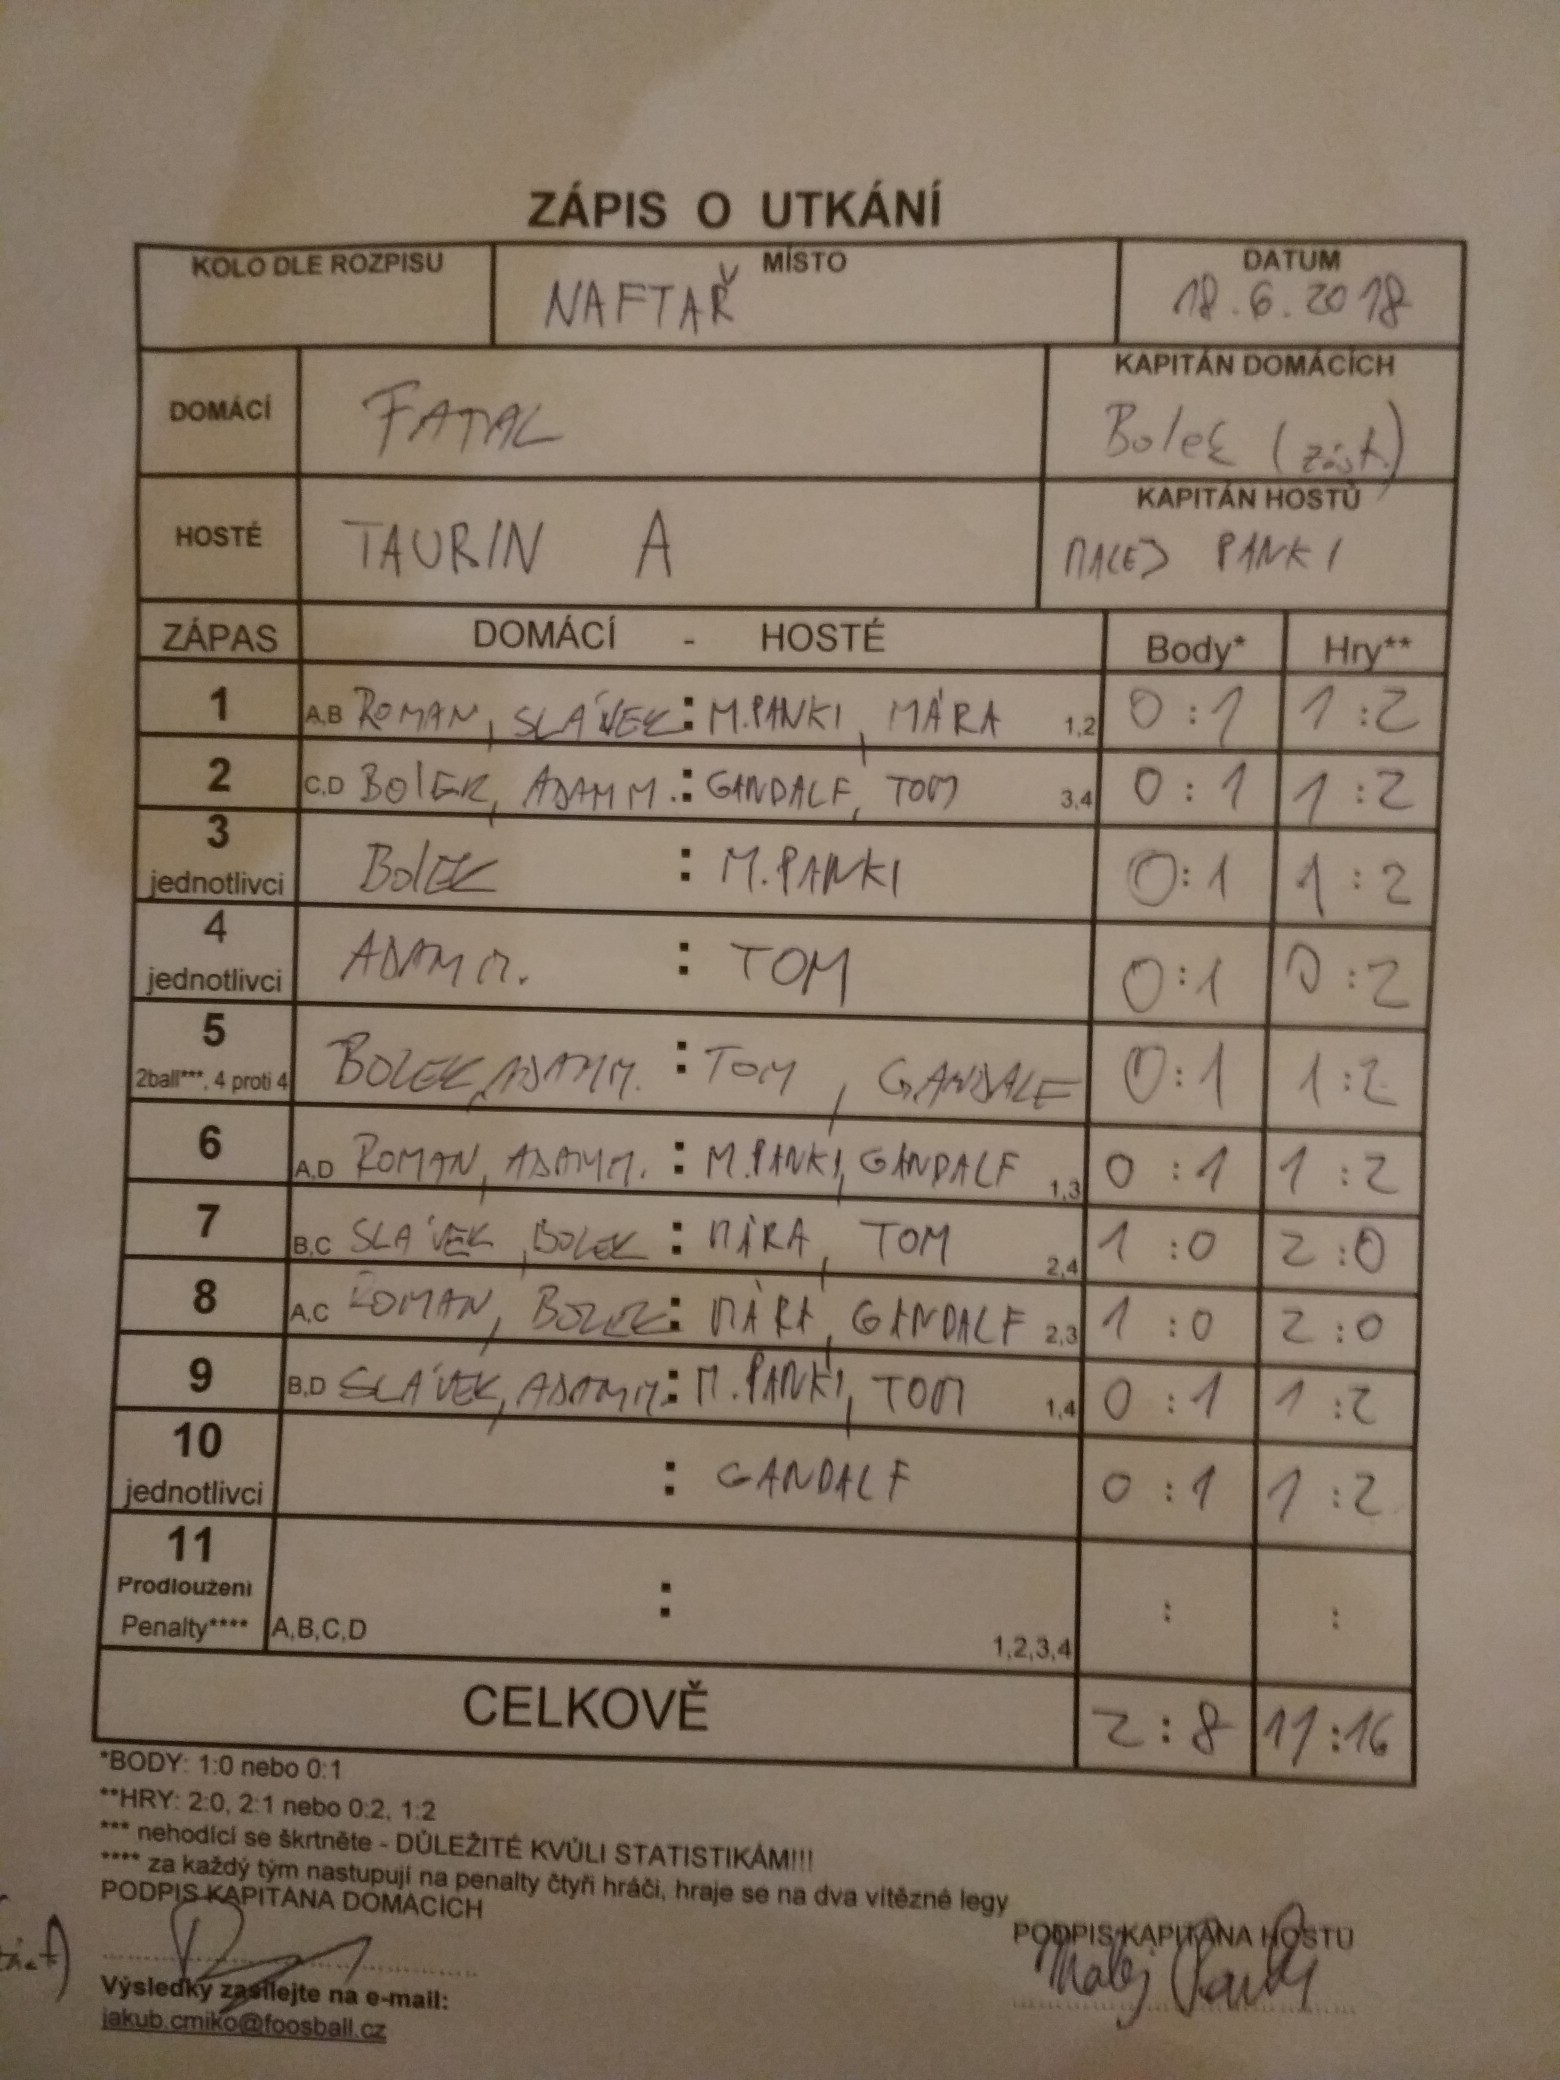 ZÁPIS O UTKÁNÍ
KOLO DLE ROZPISU MÍSTO DATUM
NAFTAŘ 18.6.2018
DOMÁCÍ FATAL KAPITÁN DOMÁCÍCH
Bolek (zást.)
HOSTÉ TAURIN A KAPITÁN HOSTŮ
MALEJ PANKI
ZÁPAS DOMÁCÍ - HOSTÉ Body* Hry**
1 A,B ROMAN, SLÁVEK : M.PANKI, MÁRA 1,2 0:1 1:2
2 C,D BOLEK, ADAM M. : GANDALF, TOM 3,4 0:1 1:2
3 jednotlivci BOLEK : M.PANKI 0:1 1:2
4 jednotlivci ADAM M. : TOM 0:1 0:2
5 2ball***, 4 proti 4 BOLEK, ADAM M. : TOM, GANDALF 0:1 1:2
6 A,D ROMAN, ADAM M. : M.PANKI, GANDALF 1,3 0:1 1:2
7 B,C SLÁVEK, BOLEK : MÁRA, TOM 2,4 1:0 2:0
8 A,C ROMAN, BOLEK : MÁRA, GANDALF 2,3 1:0 2:0
9 B,D SLÁVEK, ADAM M. : M.PANKI, TOM 1,4 0:1 1:2
10 jednotlivci : GANDALF 0:1 1:2
11 Prodloužení Penalty**** A,B,C,D : 1,2,3,4 : :
CELKOVĚ 2:8 11:16
*BODY: 1:0 nebo 0:1
**HRY: 2:0, 2:1 nebo 0:2, 1:2
*** nehodící se škrtněte - DŮLEŽITÉ KVŮLI STATISTIKÁM!!!
**** za každý tým nastupují na penalty čtyři hráči, hraje se na dva vítězné legy
PODPIS KAPITÁNA DOMÁCÍCH PODPIS KAPITÁNA HOSTŮ
Malej Panki
Výsledky zasílejte na e-mail:
jakub.cmiko@foosball.cz